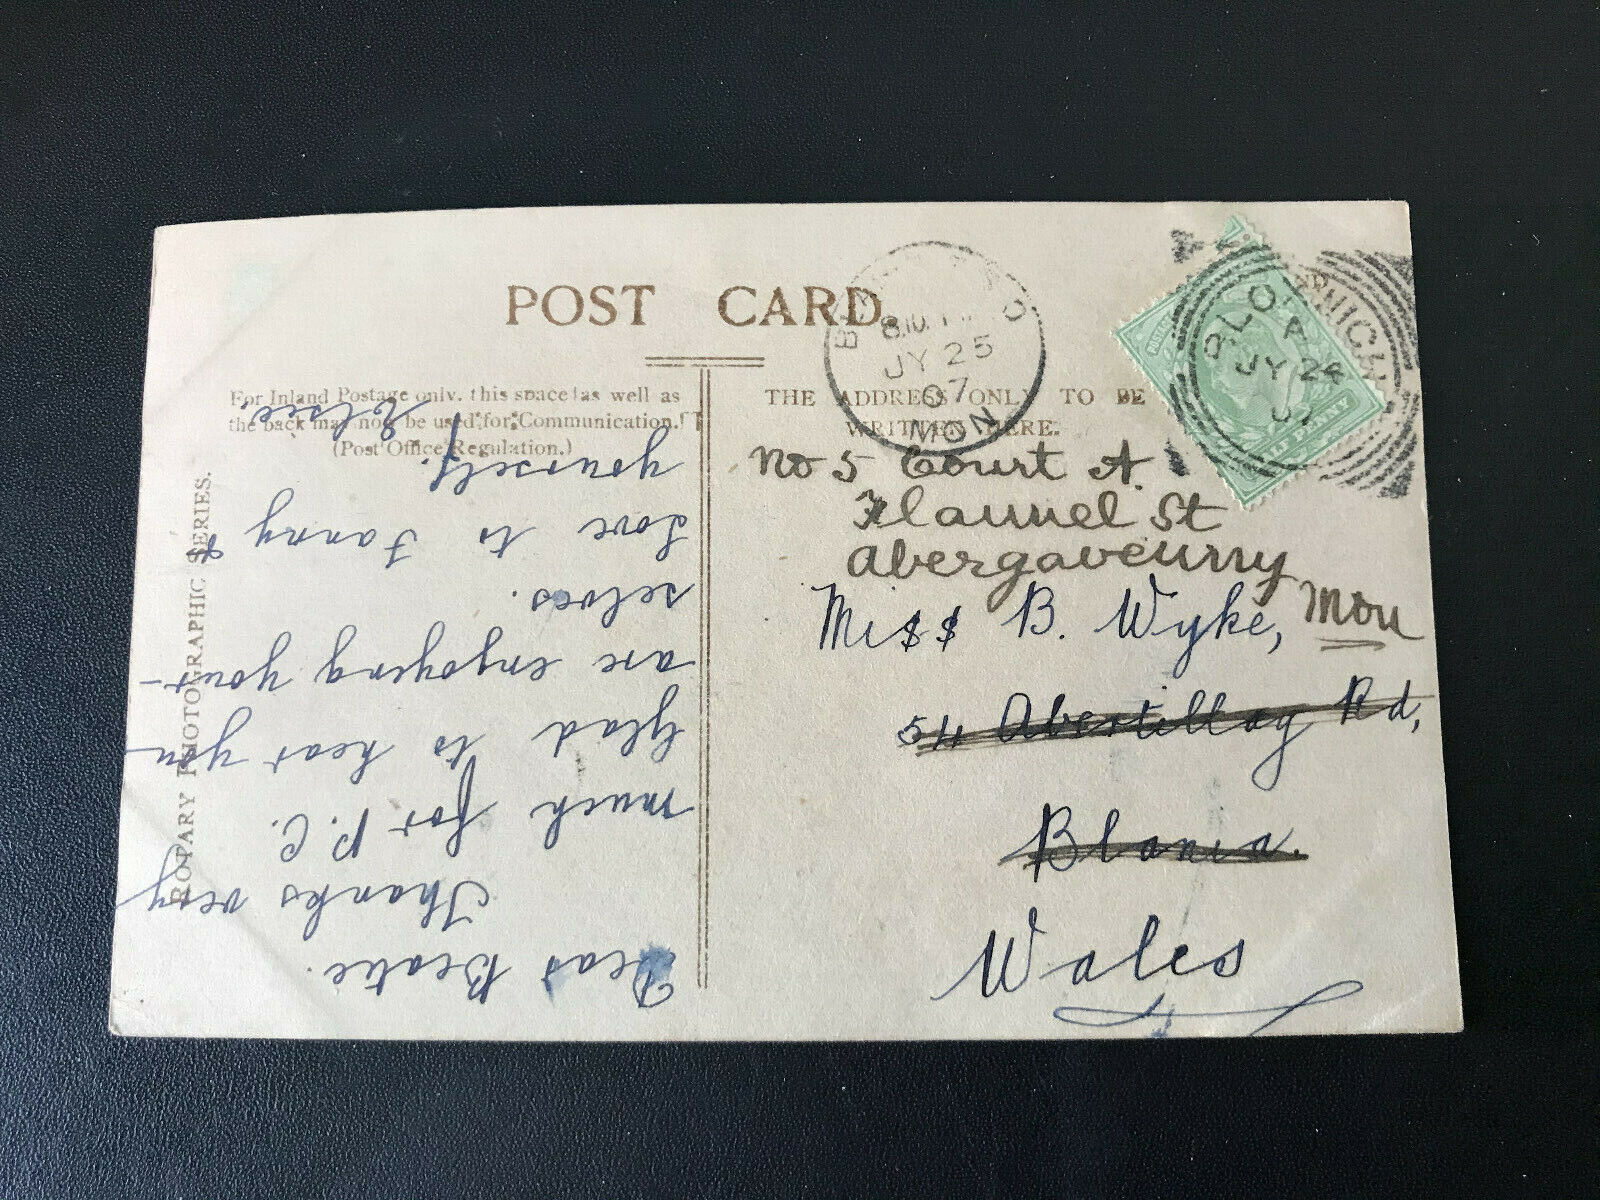 POST CARD.
For Inland Postage only, this space, as well as
the back may now be used for Communication.
(Post Office Regulation.)
THE ADDRESS ONLY TO BE
WRITTEN HERE.
ROTARY PHOTOGRAPHIC SERIES.
8.10.
JY 25
07
MON
JY 24
07
HALFPENNY
No 5 Court A.
Flannel St
Abergavenny
Mon
Miss B. Wyke,
54 Abertillay Rd,
Blania.
Wales
Dear Beatie.
Thanks very
much for P.C.
Glad to hear you
are enjoying your-
selves.
Love to Fanny &
yourself.
Elsie.